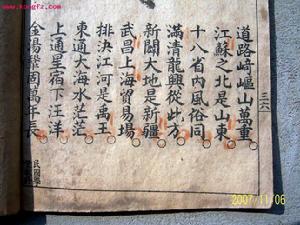 www.kongfz.cn
三六
道路崎嶇山萬重
江蘇之北是山東
十八省內風俗同
滿清龍興從此方
新闢大地是新疆
武昌上海貿易場
排決江河是禹王
東通大海水茫茫
上通星宿下汪洋
金湯鞏固萬年長
2007/11/06